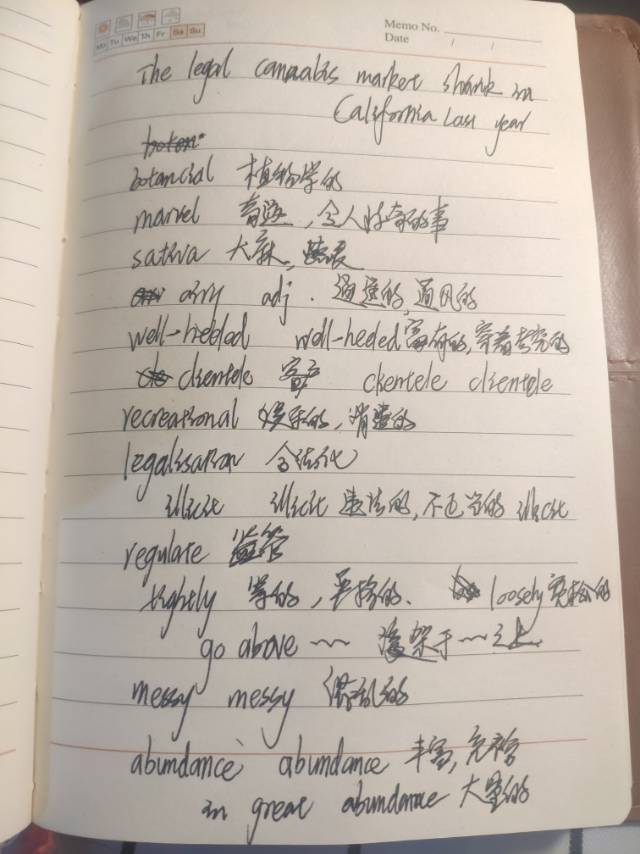 Memo No.
Mo Tu We Th Fr Sa Su
Date / /
The legal cannabis market shrank in
California last year
botancial 植物学的
marvel 奇迹,令人好奇的事
sativa 大麻,
airy adj. 通风的
well-heeled 富有的,穿着考究的
clientele 客户 clientele clientele
recreational 娱乐的,消遣的
legalisation 合法化
illicit illicit 违法的,不正当的 illicit
regulate 监管
tightly 紧的,严格的. loosely 宽松的
go above ~~ 凌驾于~~之上
messy messy 混乱的
abundance abundance 丰富,充裕
in great abundance 大量的